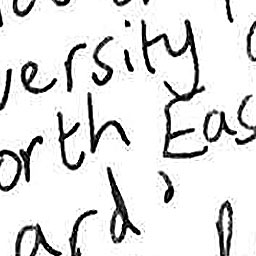 versity
orth Eas
ard'